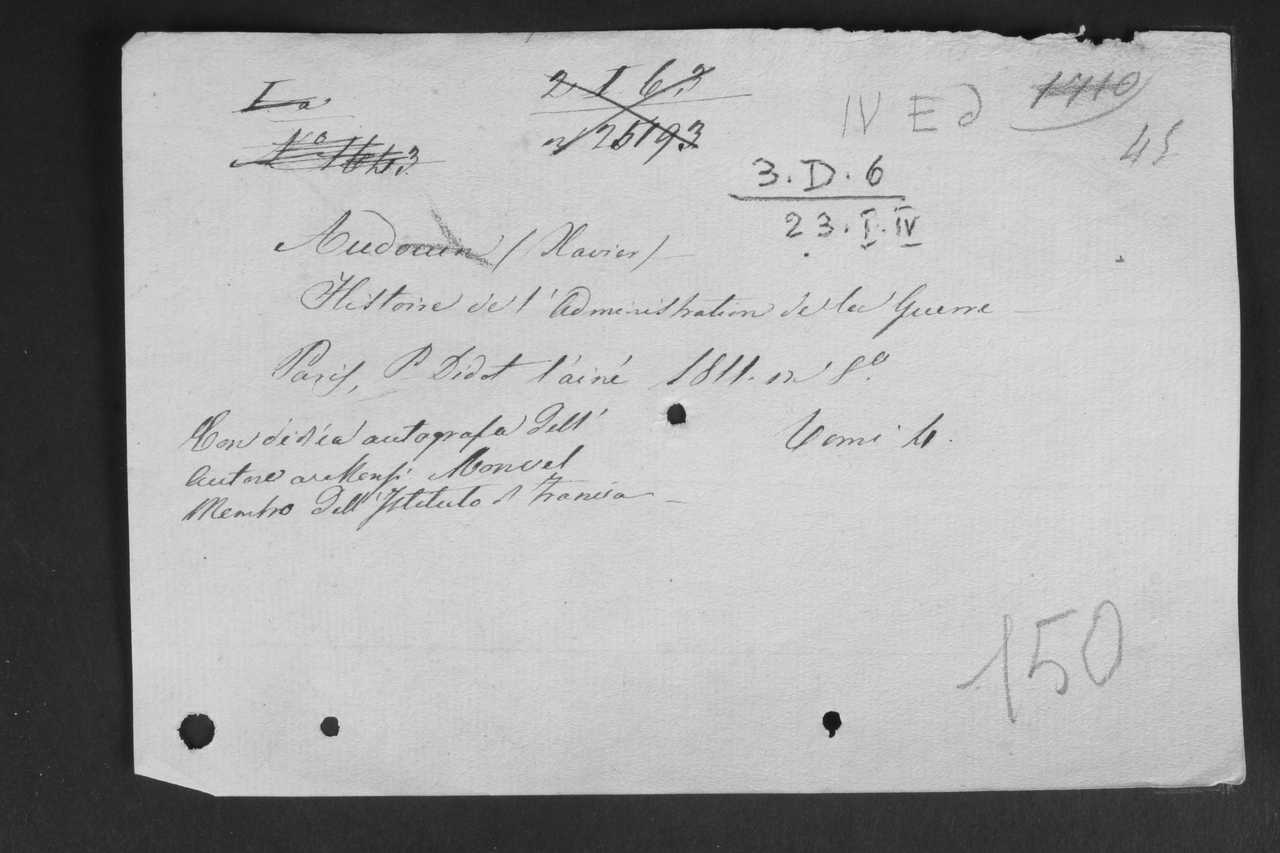 I a
2 I 6 2
IV E d
1710
45
N.º 1643
n 25193
3.D.6
23.I.IV
Audouin (Xavier)
Histoire de l'Administration de la Guerre
Paris, P. Didot l'ainé 1811. in 8º.
Con dedica autografa dell'
Tomi 4.
Autore a Monsr. Monvel
Membro dell'Istituto di Francia
150